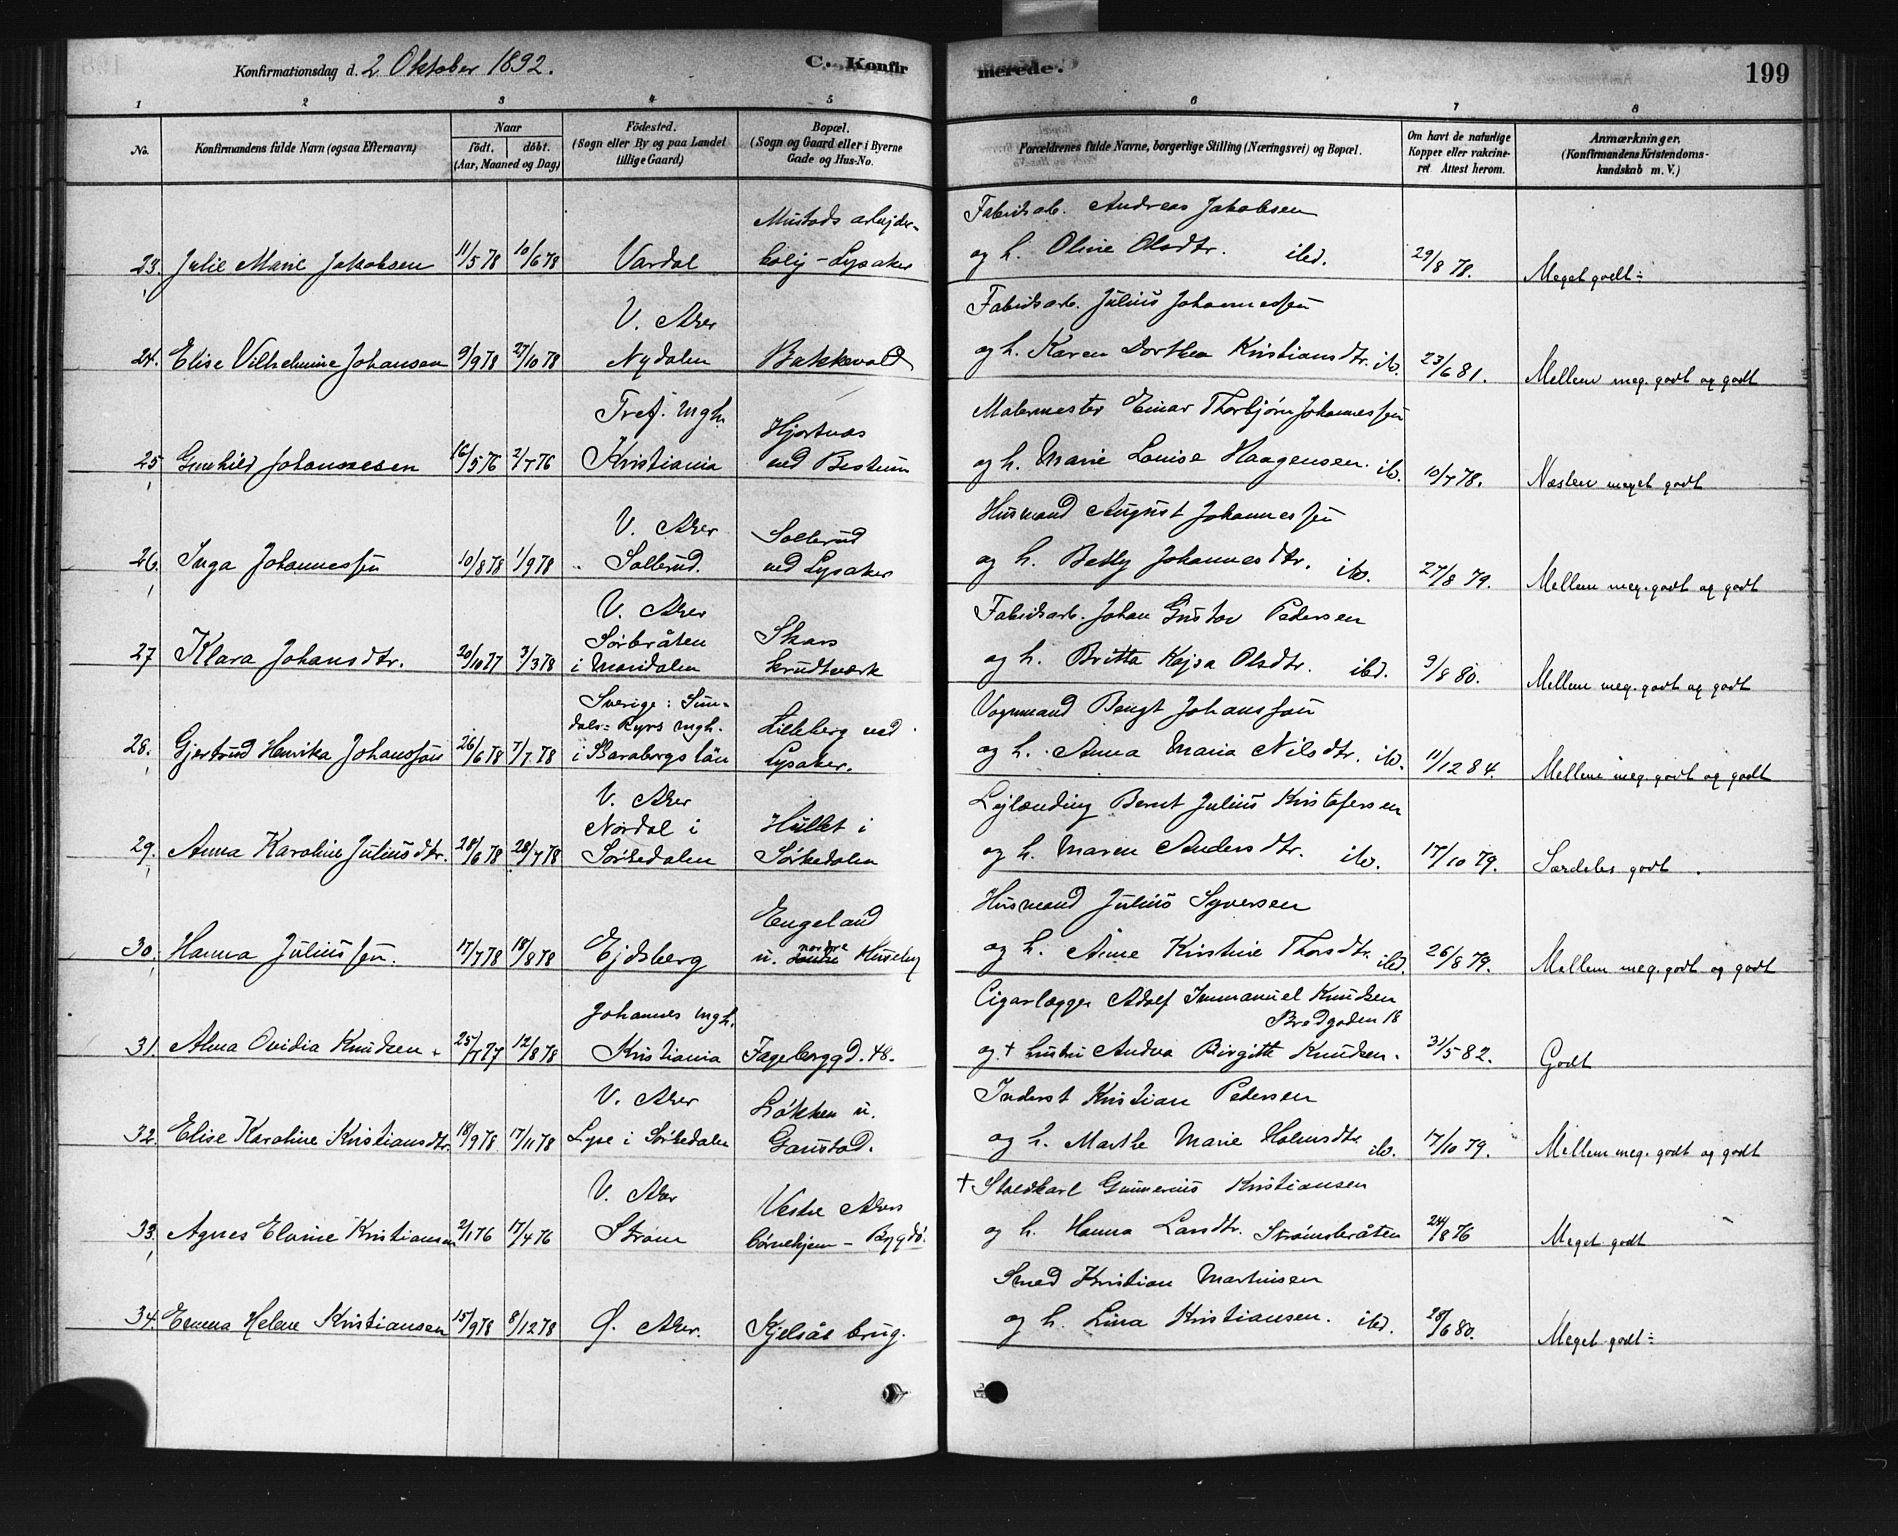 Konfirmationsdag d. 2 Oktober 1892.
C. Konfirmerede.
199
1 2 3 4 5 6 7 8
No.
Konfirmandens fulde Navn (ogsaa Efternavn)
Naar
født. døbt.
(Aar, Maaned og Dag)
Fødested.
(Sogn eller By og paa Landet
tillige Gaard)
Bopæl.
(Sogn og Gaard eller i Byerne
Gade og Hus-No.
Forældrenes fulde Navne, borgerlige Stilling (Næringsvei) og Bopæl.
Om havt de naturlige
Kopper eller vakcine-
ret Attest herom.
Anmærkninger.
(Konfirmandens Kristendoms-
kundskab m. V.)
Mustads arbejder- Fabriksarb. Andreas Jakobsen
23. Julie Marie Jakobsen 11/5 78 10/6 78 Vardal bolig - Lysaker og h. Oline Olsdtr. ibd. 29/8 78. Meget godt÷
V. Aker Fabriksarb. Julius Johannessen
24. Elise Vilhelmine Johansen 9/9 78 27/10 78 Nydalen Bakkevold og h. Karen Dorthea Kristiansdtr. ib. 23/6 81. Mellem meg. godt og godt
Tref. mgh. Hjortnæs Malermester Einar Thorbjørn Johannessen
25 Gunhild Johannesen 16/5 76 2/7 76 Kristiania ved Bestum og h. Marie Louise Haagensen. ib. 10/7 78. Næsten meget godt
V. Aker Sollerud Husmand August Johannessen
26. Inga Johannessen 10/8 78 1/9 78 Sollerud. ved Lysaker og h. Betty Johannesdtr. ib. 27/8 79. Mellem meg. godt og godt
V. Aker
Sørbråten Skars Fabriksarb. Johan Gustav Pedersen
27 Klara Johansdtr. 20/10 77 3/3 78 i Maridalen krudtværk og h. Britta Kajsa Olsdtr. ibd. 9/8 80. Mellem meg. godt og godt
Sverige: Sun-
dals=Ryrs mgh. Lilleberg ved Vognmand Bengt Johansson
28. Gjertrud Henrika Johansson 26/6 78 7/7 78 i Skaraborgs län Lysaker. og h. Anna Maria Nilsdtr. ib. 11/12 84. Mellem meg. godt og godt
V. Aker
Nordal i Hullet i Lejlænding Bernt Julius Kristofersen
29. Anna Karoline Juliusdtr. 28/6 78 28/7 78 Sørkedalen Sørkedalen og h. Maren Andersdtr. ib. 17/10 79. Særdeles godt.
Engeland Husmand Julius Syversen
30. Hanna Juliussen. 17/7 78 18/8 78 Ejdsberg u. nordre Huseby og h. Anne Kristine Thorsdtr. ibd. 26/8 79. Mellem meg. godt og godt
Johannes mgh. Cigarlægger Adolf Immanuel Knudsen
Bredgaden 18
31. Alma Ovidia Knudsen 25/7 77 12/8 78 Kristiania Fageborggd. 48. og + hustru Andrea Birgitte Knudsen. 31/5 82. Godt
V. Aker Løkken u. Inderst Kristian Pedersen
32. Elise Karoline Kristiansdtr. 18/9 78 17/11 78 Lyse i Sørkedalen Gaustad. og h. Marthe Marie Holmsdtr ib. 17/10 79. Mellem meg. godt og godt
V. Aker Vestre Akers + Staldkarl Gunnerius Kristiansen
33. Agnes Elovine Kristiansen 2/1 76 17/4 76 Strøm børnehjem - Bygdø. og h. Hanna Larsdtr. Strømsbråten 24/8 76 Meget godt
Smed Kristian Martinsen
34. Emma Helene Kristiansen 15/9 78 8/12 78 Ø. Aker. Kjelsås brug. og h. Lina Kristiansen. ibd. 28/6 80. Meget godt÷